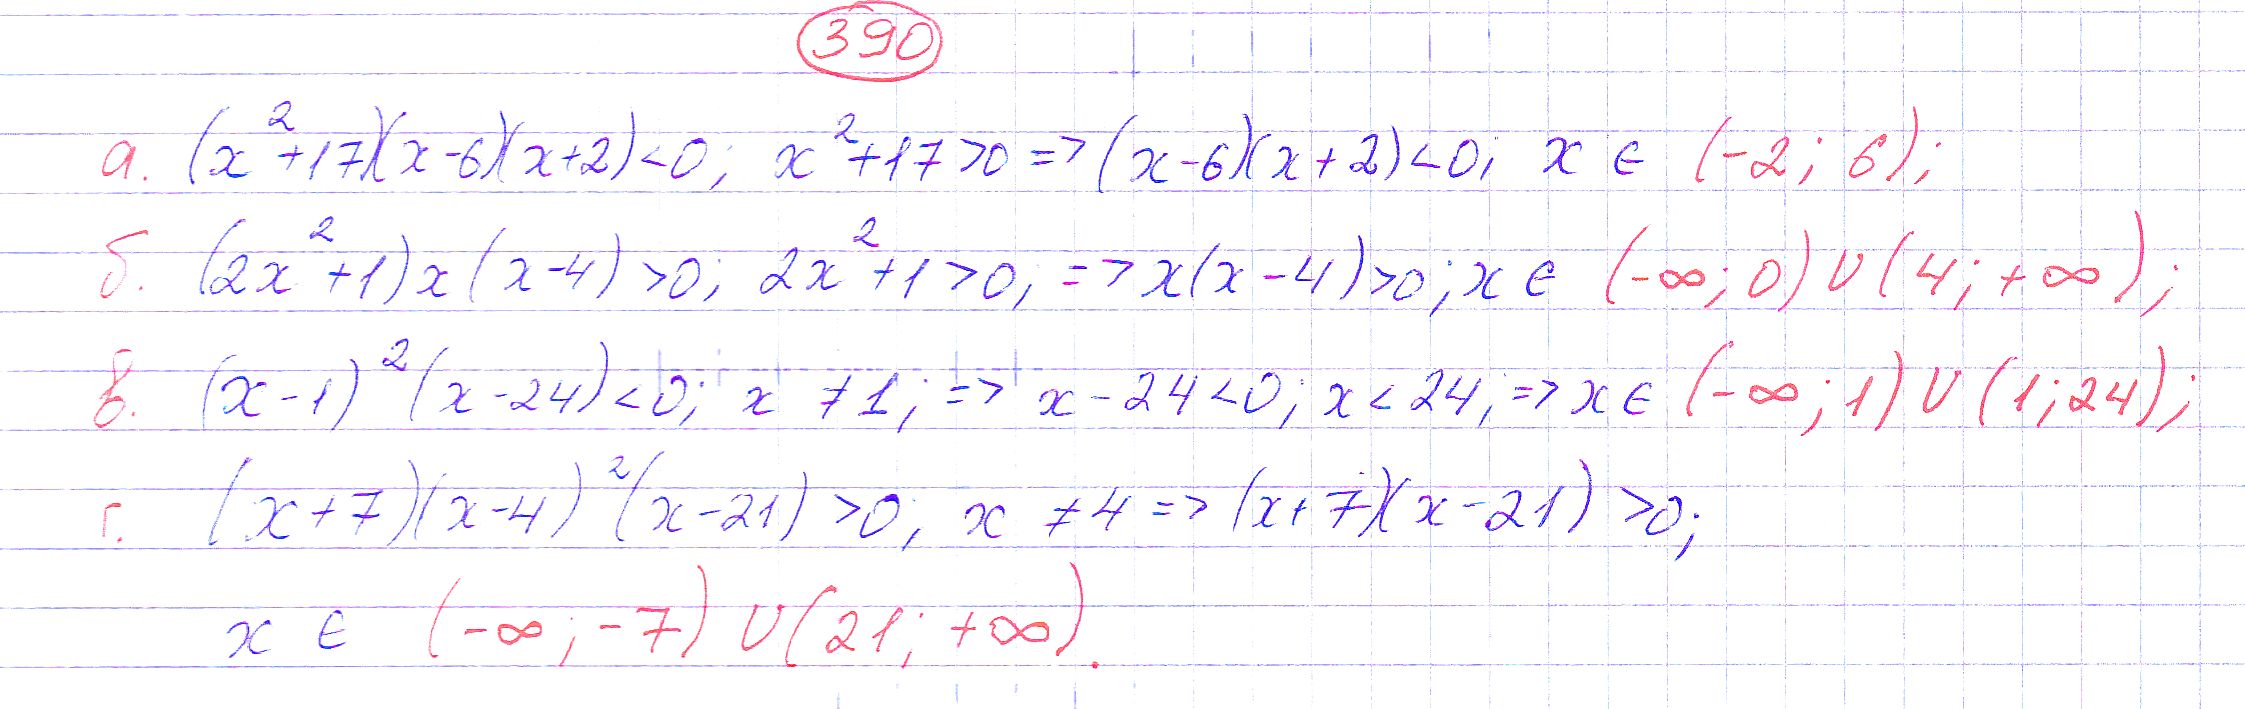 390
а. (x²+17)(x-6)(x+2)<0; x²+17>0=>(x-6)(x+2)<0; x ∈ (-2; 6);
б. (2x²+1)x(x-4)>0; 2x²+1>0; =>x(x-4)>0; x ∈ (-∞; 0)∪(4; +∞);
в. (x-1)²(x-24)<0; x ≠1; => x-24<0; x<24; => x ∈ (-∞; 1)∪(1; 24);
г. (x+7)(x-4)²(x-21)>0; x ≠4 => (x+7)(x-21)>0;
x ∈ (-∞; -7)∪(21; +∞).